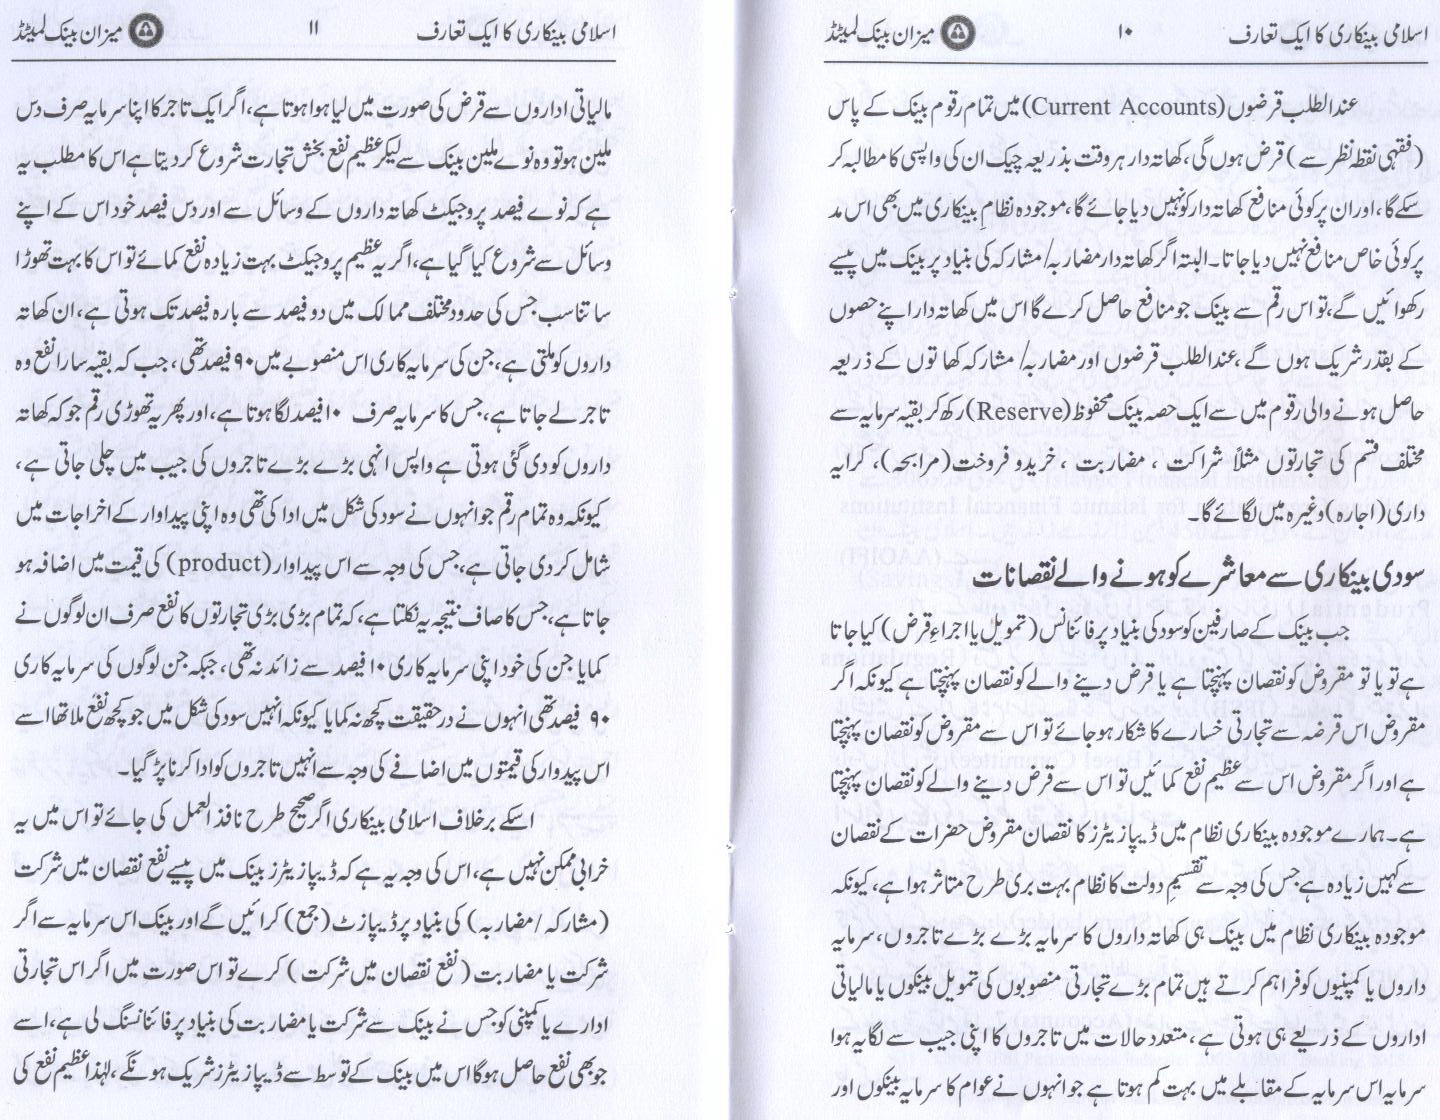 اسلامی بینکاری کا ایک تعارف ۱۰ میزان بینک لمیٹڈ
عندالطلب قرضوں (Current Accounts) میں تمام رقوم بینک کے پاس
(فقہی نقطہ نظر سے) قرض ہوں گی، کھاتہ دار ہر وقت بذریعہ چیک ان کی واپسی کا مطالبہ کر
سکے گا، اور ان پر کوئی منافع کھاتہ دار کو نہیں دیا جائے گا، موجودہ نظامِ بینکاری میں بھی اس مد
پر کوئی خاص منافع نہیں دیا جاتا۔ البتہ اگر کھاتہ دار مضاربہ/مشارکہ کی بنیاد پر بینک میں پیسے
رکھوائیں گے، تو اس رقم سے بینک جو منافع حاصل کرے گا اس میں کھاتہ دار اپنے حصوں
کے بقدر شریک ہوں گے، عندالطلب قرضوں اور مضاربہ/ مشارکہ کھاتوں کے ذریعہ
حاصل ہونے والی رقوم میں سے ایک حصہ بینک محفوظ (Reserve) رکھ کر بقیہ سرمایہ سے
مختلف قسم کی تجارتوں مثلاً شراکت ، مضاربت ، خرید و فروخت (مرابحہ)، کرایہ
داری (اجارہ) وغیرہ میں لگائے گا۔
سودی بینکاری سے معاشرے کو ہونے والے نقصانات
جب بینک کے صارفین کو سود کی بنیاد پر فائنانس (تمویل یا اجراءِ قرض) کیا جاتا
ہے تو یا تو مقروض کو نقصان پہنچتا ہے یا قرض دینے والے کو نقصان پہنچتا ہے کیونکہ اگر
مقروض اس قرضہ سے تجارتی خسارے کا شکار ہو جائے تو اس سے مقروض کو نقصان پہنچتا
ہے اور اگر مقروض اس سے عظیم نفع کمائیں تو اس سے قرض دینے والے کو نقصان پہنچتا
ہے۔ ہمارے موجودہ بینکاری نظام میں ڈیپازیٹرز کا نقصان مقروض حضرات کے نقصان
سے کہیں زیادہ ہے جس کی وجہ سے تقسیمِ دولت کا نظام بہت بری طرح متاثر ہوا ہے، کیونکہ
موجودہ بینکاری نظام میں بینک ہی کھاتہ داروں کا سرمایہ بڑے بڑے تاجروں، سرمایہ
داروں یا کمپنیوں کو فراہم کرتے ہیں تمام بڑے تجارتی منصوبوں کی تمویل بینکوں یا مالیاتی
اداروں کے ذریعے ہی ہوتی ہے، متعدد حالات میں تاجروں کا اپنی جیب سے لگایہ ہوا
سرمایہ اس سرمایہ کے مقابلے میں بہت کم ہوتا ہے جو انہوں نے عوام کا سرمایہ بینکوں اور
اسلامی بینکاری کا ایک تعارف ۱۱ میزان بینک لمیٹڈ
مالیاتی اداروں سے قرض کی صورت میں لیا ہوا ہوتا ہے، اگر ایک تاجر کا اپنا سرمایہ صرف دس
ملین ہو تو وہ نوے ملین بینک سے لیکر عظیم نفع بخش تجارت شروع کر دیتا ہے اس کا مطلب یہ
ہے کہ نوے فیصد پروجیکٹ کھاتہ داروں کے وسائل سے اور دس فیصد خود اس کے اپنے
وسائل سے شروع کیا گیا ہے، اگر یہ عظیم پروجیکٹ بہت زیادہ نفع کمائے تو اس کا بہت تھوڑا
سا تناسب جس کی حدود مختلف ممالک میں دو فیصد سے بارہ فیصد تک ہوتی ہے، ان کھاتہ
داروں کو ملتی ہے، جن کی سرمایہ کاری اس منصوبے میں ۹۰ فیصد تھی، جب کہ بقیہ سارا نفع وہ
تاجر لے جاتا ہے، جس کا سرمایہ صرف ۱۰ فیصد لگا ہوتا ہے، اور پھر یہ تھوڑی رقم جو کہ کھاتہ
داروں کو دی گئی ہوتی ہے واپس انہی بڑے بڑے تاجروں کی جیب میں چلی جاتی ہے،
کیونکہ وہ تمام رقم جو انہوں نے سود کی شکل میں ادا کی تھی وہ اپنی پیداوار کے اخراجات میں
شامل کر دی جاتی ہے، جس کی وجہ سے اس پیداوار (product) کی قیمت میں اضافہ ہو
جاتا ہے، جس کا صاف نتیجہ یہ نکلتا ہے، کہ تمام بڑی بڑی تجارتوں کا نفع صرف ان لوگوں نے
کمایا جن کی خود اپنی سرمایہ کاری ۱۰ فیصد سے زائد نہ تھی، جبکہ جن لوگوں کی سرمایہ کاری
۹۰ فیصد تھی انہوں نے در حقیقت کچھ نہ کمایا کیونکہ انہیں سود کی شکل میں جو کچھ نفع ملا تھا اسے
اس پیدواری قیمتوں میں اضافے کی وجہ سے انہیں تاجروں کو ادا کرنا پڑ گیا۔
اسکے برخلاف اسلامی بینکاری اگر صحیح طرح نافذ العمل کی جائے تو اس میں یہ
خرابی ممکن نہیں ہے، اس کی وجہ یہ ہے کہ ڈیپازیٹرز بینک میں پیسے نفع نقصان میں شرکت
(مشارکہ/مضاربہ) کی بنیاد پر ڈیپازٹ (جمع) کرائیں گے اور بینک اس سرمایہ سے اگر
شرکت یا مضاربت (نفع نقصان میں شرکت) کرے تو اس صورت میں اگر اس تجارتی
ادارے یا کمپنی کو جس نے بینک سے شرکت یا مضاربت کی بنیاد پر فائنانسنگ لی ہے، اسے
جو بھی نفع حاصل ہوگا اس میں بینک کے توسط سے ڈیپازیٹرز شریک ہونگے، لہٰذا عظیم نفع کی